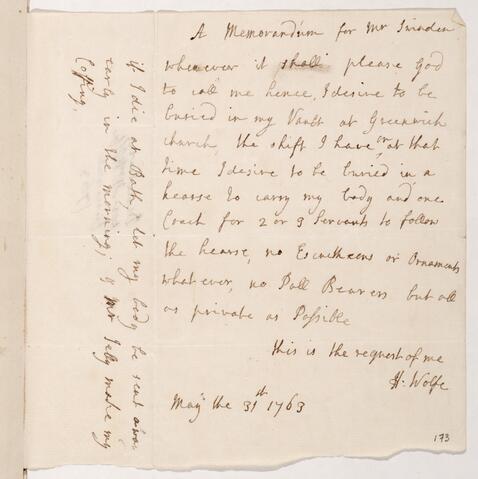 A Memorandum for Mr Swinden
whenever it shall please God
to call me hence, I desire to be
buried in my Vault at Greenwich
church, the shift I have on at that
time I desire to be buried in a
hearse to carry my body and one
Coach for 2 or 3 Servants to follow
the hearse, no Escutheons or Ornaments
whatever, no Pall Bearers but all
as private as Possible
this is the request of me
H: Wolfe
May the 31st 1763
173
if I die at Bath, let my body be sent away
early in the morning; & Mr Jelly make my
Coffing.